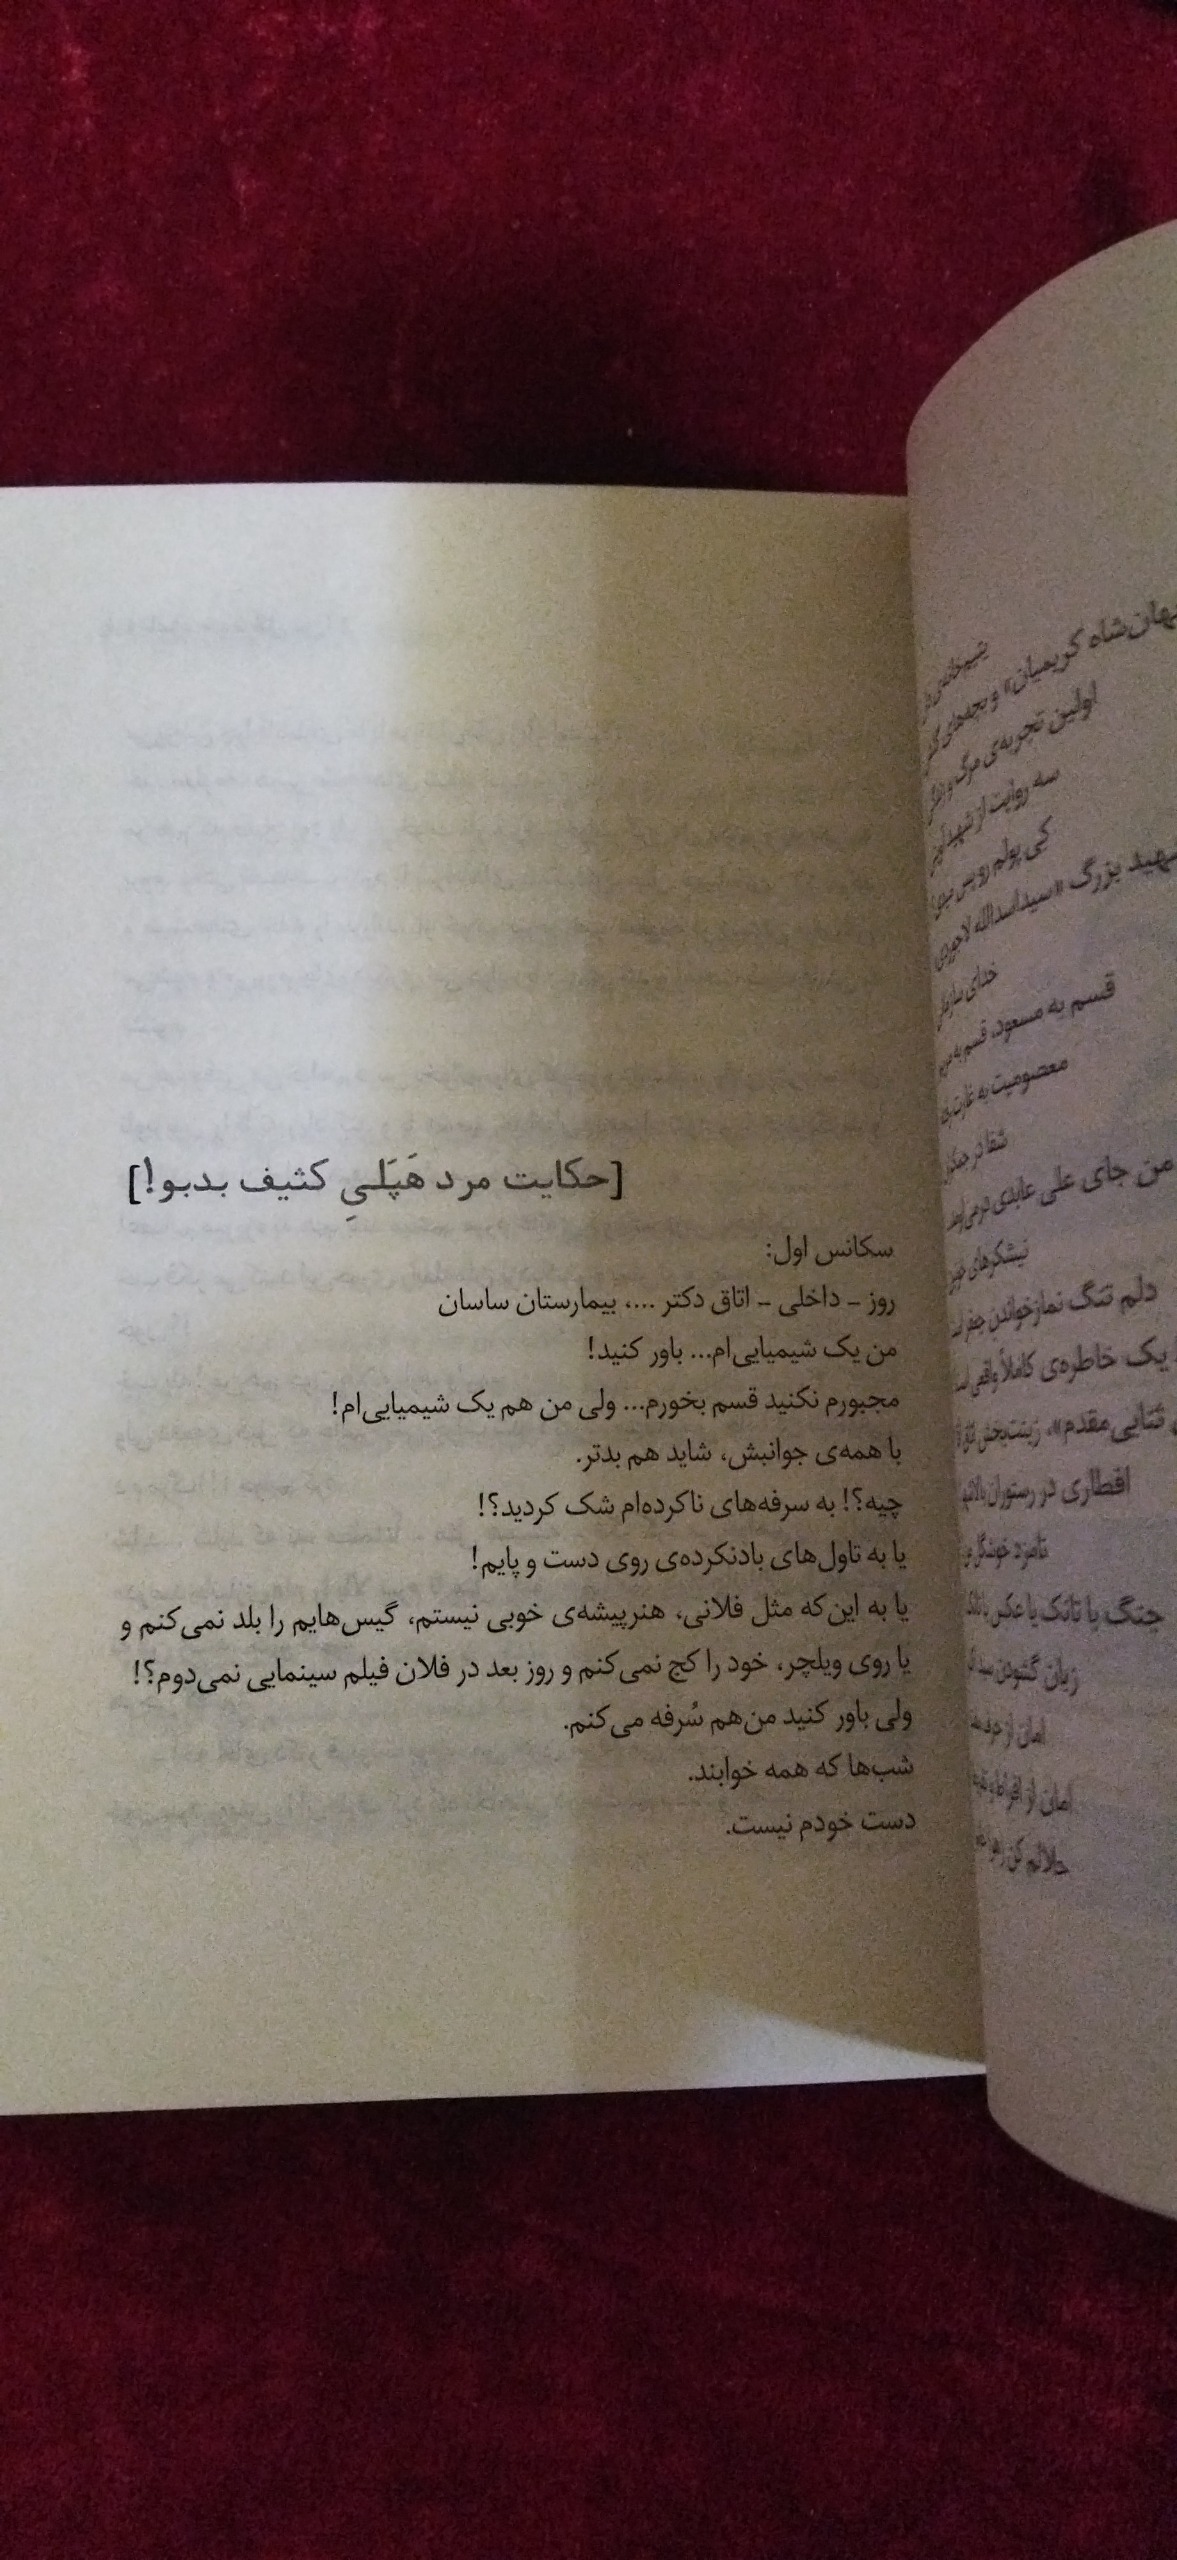 [حکایت مرد هَپَلـیِ کثیف بدبو!]
سکانس اول:
روز - داخلی - اتاق دکتر ...، بیمارستان ساسان
من یک شیمیایی‌ام... باور کنید!
مجبورم نکنید قسم بخورم... ولی من هم یک شیمیایی‌ام!
با همه‌ی جوانبش، شاید هم بدتر.
چیه؟! به سرفه‌های ناکرده‌ام شک کردید؟!
یا به تاول‌های بادنکرده‌ی روی دست و پایم!
یا به این‌که مثل فلانی، هنرپیشه‌ی خوبی نیستم، گیس‌هایم را بلد نمی‌کنم و
یا روی ویلچر، خود را کج نمی‌کنم و روز بعد در فلان فیلم سینمایی نمی‌دوم؟!
ولی باور کنید من‌هم سُرفه می‌کنم.
شب‌ها که همه خوابند.
دست خودم نیست.
کریمیان» و بچه‌های
اولین تجربه‌ی مرگ و
سه روایت از شهید
کی پولم رو پس
بزرگ «سیداسدالله لاجوردی
خدای
قسم به مسعود، قسم به
معصومیت به غارت
شفا در
من جای علی عابدی در می‌آورم
نیشکرهای
دلم تنگ نمازخواندن
یک خاطره‌ی کاملاً واقعی
ثنایی‌مقدم»، زینت‌بخش
افطاری در رستوران
نامزد خوشگل
جنگ با تانک یا عکس با تانک
زبان گشودن
امان از
امان از افراط و
حلالم کن